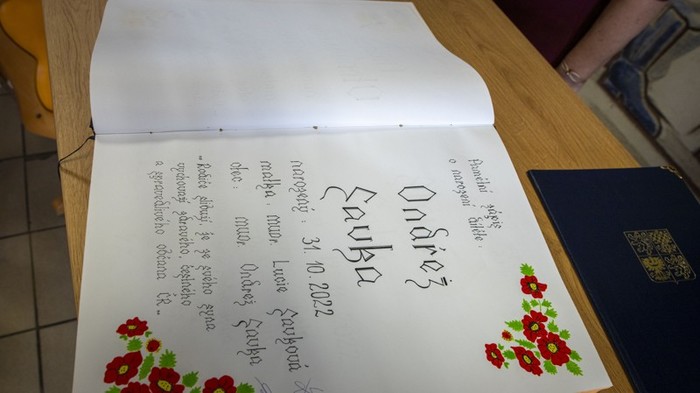 Pamětní zápis
o narození dítěte:
Ondřej
Gavka
narozený: 31. 10. 2022
matka: MUDr. Lucie Gavková
otec: MUDr. Ondřej Gavka
„Rodiče slibují, že ze svého syna
vychovají zdravého, čestného
a spravedlivého občana ČR“